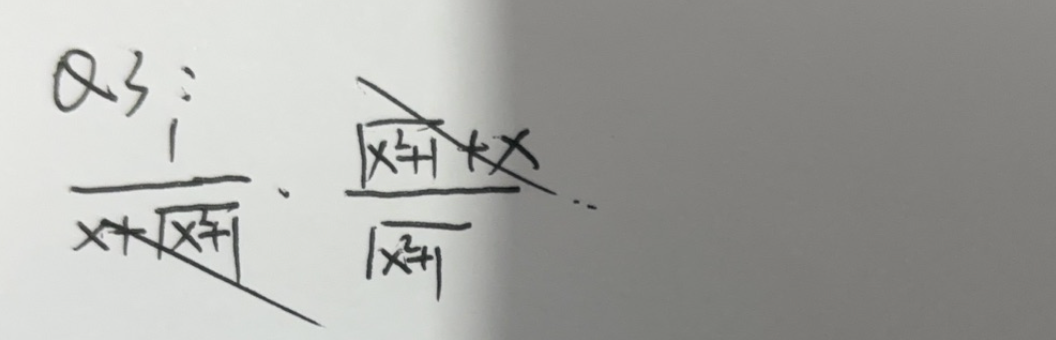 Q3:
1 / (x+√(x²+1)) · (√(x²+1) + x) / √(x²+1) ..